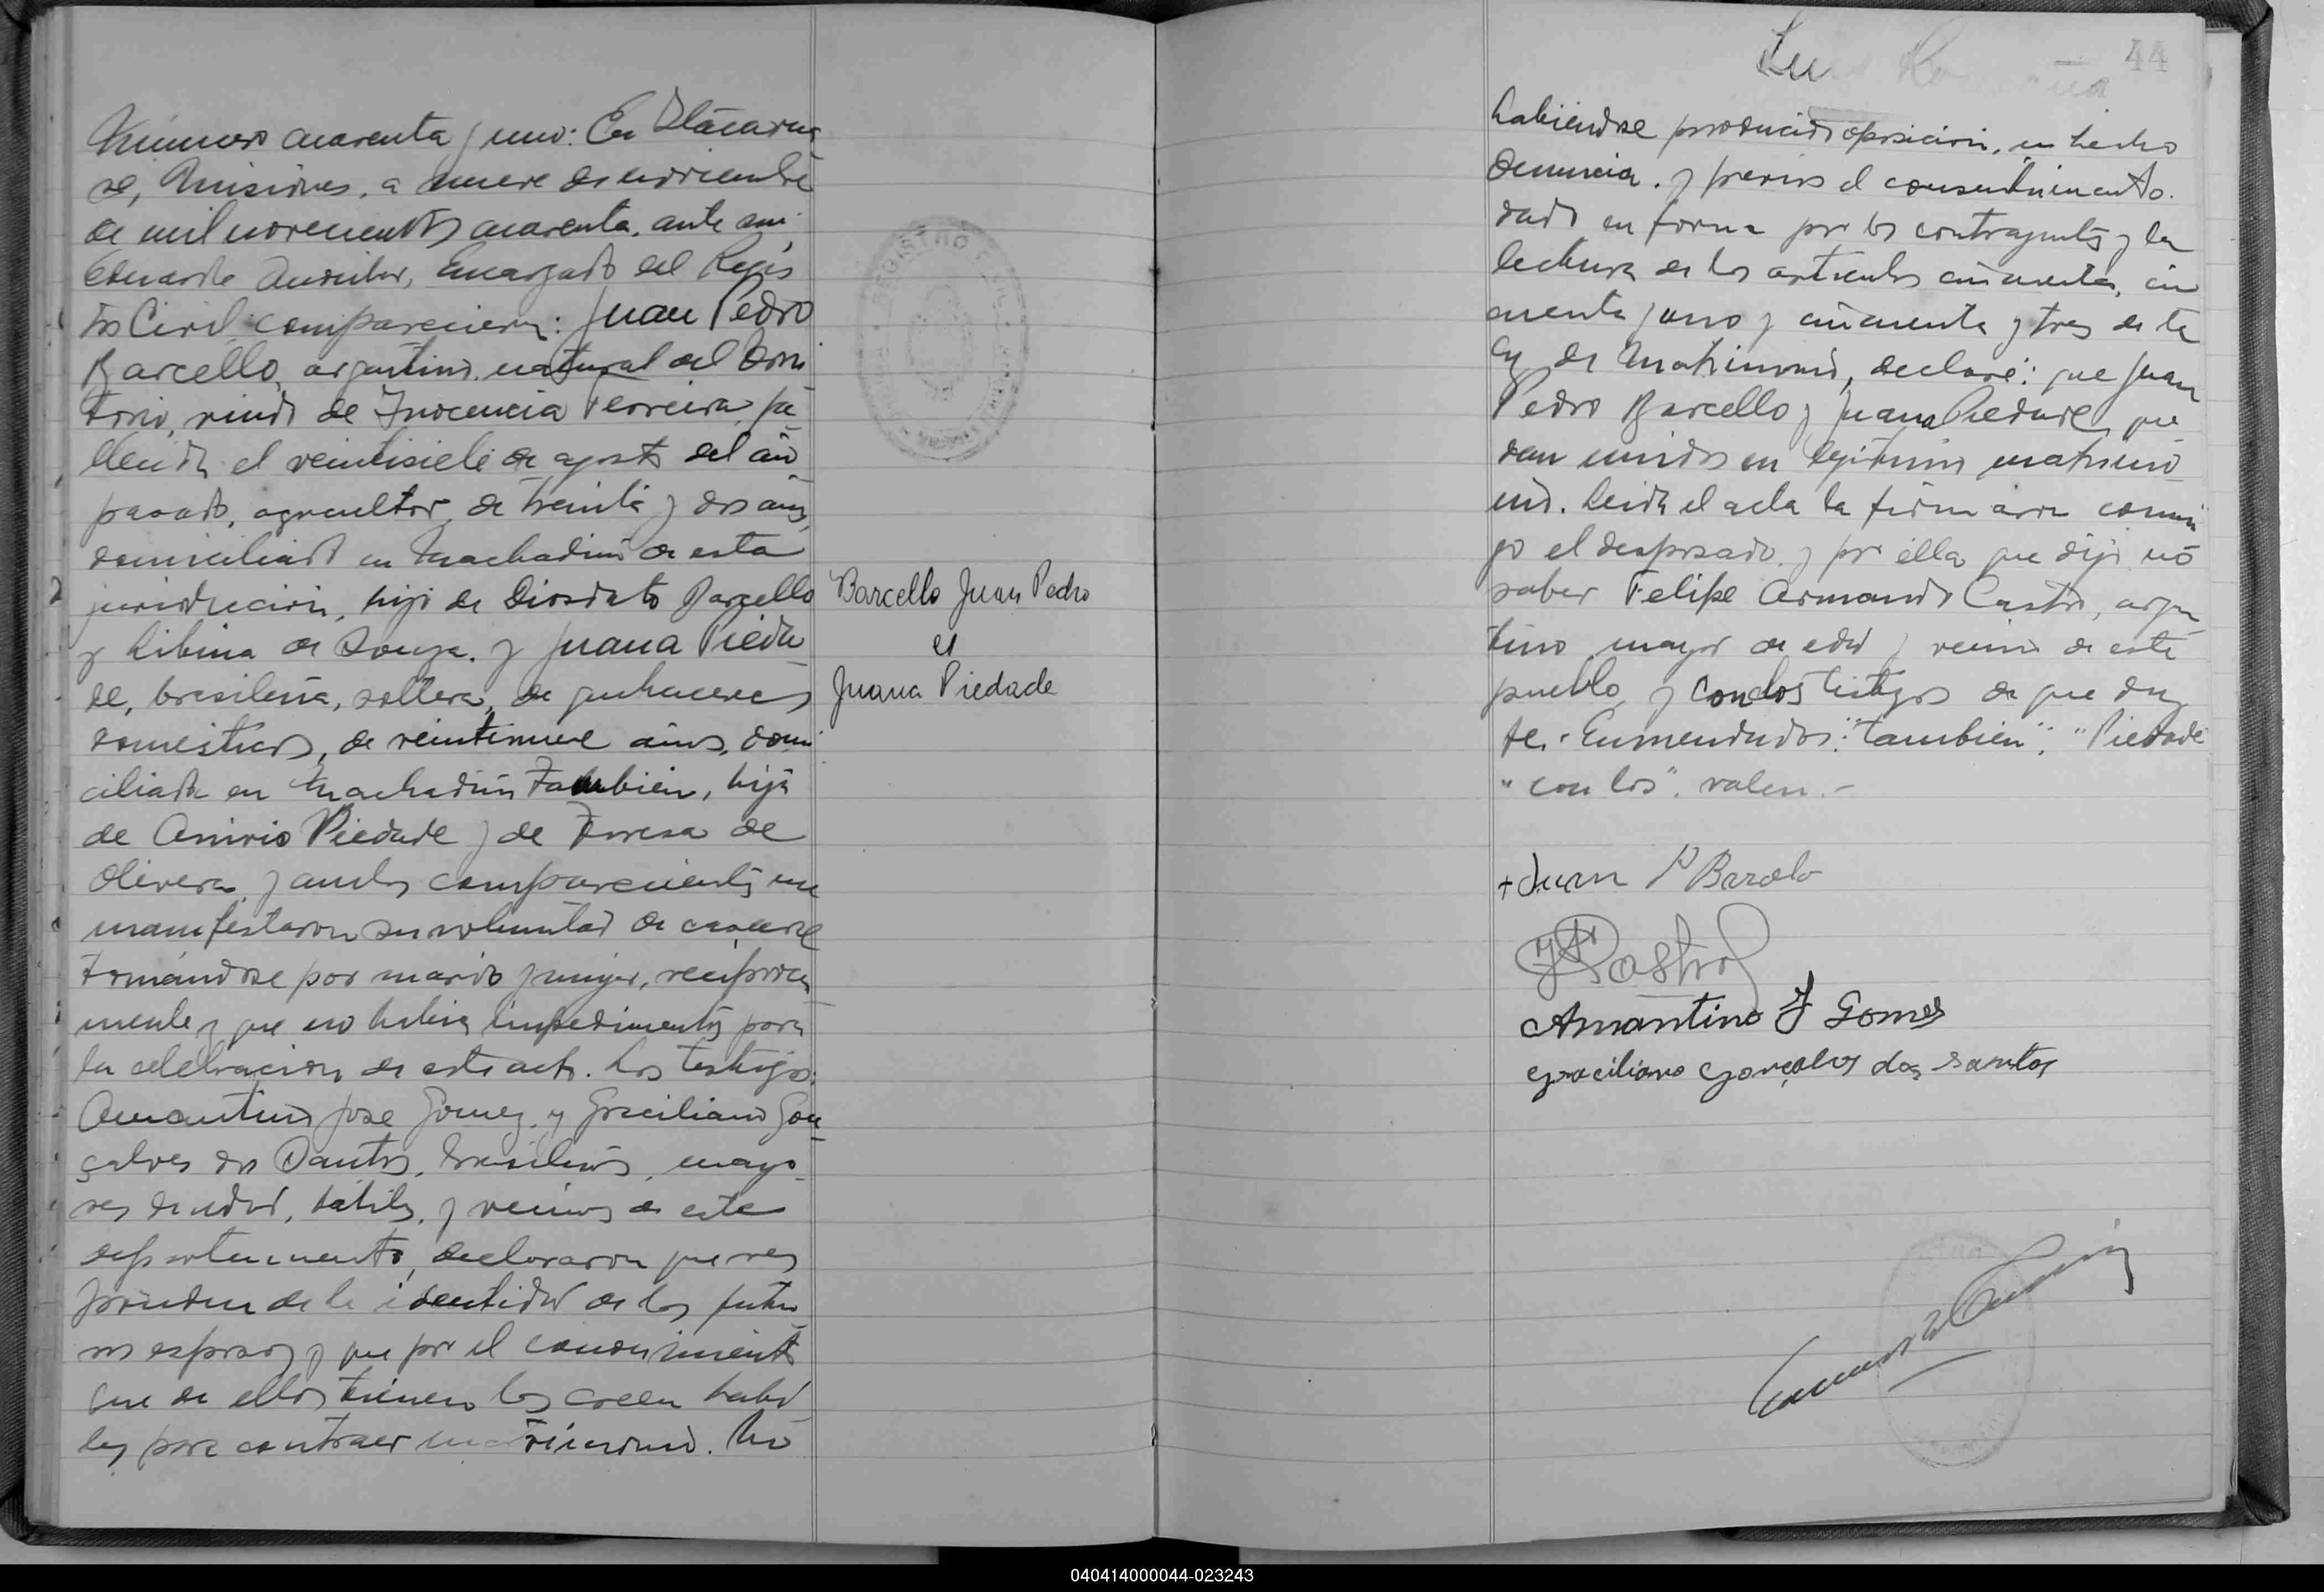 Número cuarenta y uno: En Itacarua
ré, Misiones, a nueve de noviembre
de mil novecientos cuarenta, ante mi
Eduardo Encargado del Regis
tro Civil, comparecieron: Juan Pedro
Barcello, argentino, natural del Terri
torio, viudo de Inocencia Ferreira, fa
llecida el veintisiete de agosto del año
pasado, agricultor, de treinta y dos años,
domiciliado en Machadiño de esta
jurisdiccion, hijo de Diosdato Barcello
y Libina de Souza. y Juana Pieda
de, brasileña, soltera, de quehaceres
domésticos, de veintinueve años, domi
ciliada en Machadiño también, hija
de Piedade y de Teresa de
Olivera y ambos comparecientes me
manifestaron su voluntad de casarse
tomándose por marido y mujer, reciproca
mente y que no habia impedimentos para
la celebracion de este acto. Los testigos:
Amantino José Gomez y Graciliano Gon
çalves dos Santos, brasileños, mayo
res de edad, hábiles, y vecinos de este
departamento, declararon que res
ponden de la identidad de los futu
ros esposos y que por el conocimiento
que de ellos tienen los creen habi
les para contraer matrimonio. No
Barcello Juan Pedro
et
Juana Piedade
44
habiéndose producido oposicion, ni hecho
denuncia. y previos el consentimiento
dado en forma por los contrayentes y la
lectura de los articulos cincuenta, cin
cuenta y uno y cincuenta y tres de la
ley de Matrimonio, declaré: que Juan
Pedro Barcello y Juana Piedade que
dan unidos en legitimo matrimo
nio. Leida el acta la firmaron conmi
go el desposado y por ella que dijo no
saber Felipe Armando Castro, argen
tino mayor de edad y vecino de este
pueblo y con los testigos de que doy
fe. Enmendados: "también", "Piedade"
"con los". valen.-
+ Juan P Barcelo
Castro
Amantino J Gomes
Graciliano Gonçalves dos Santos
040414000044-023243